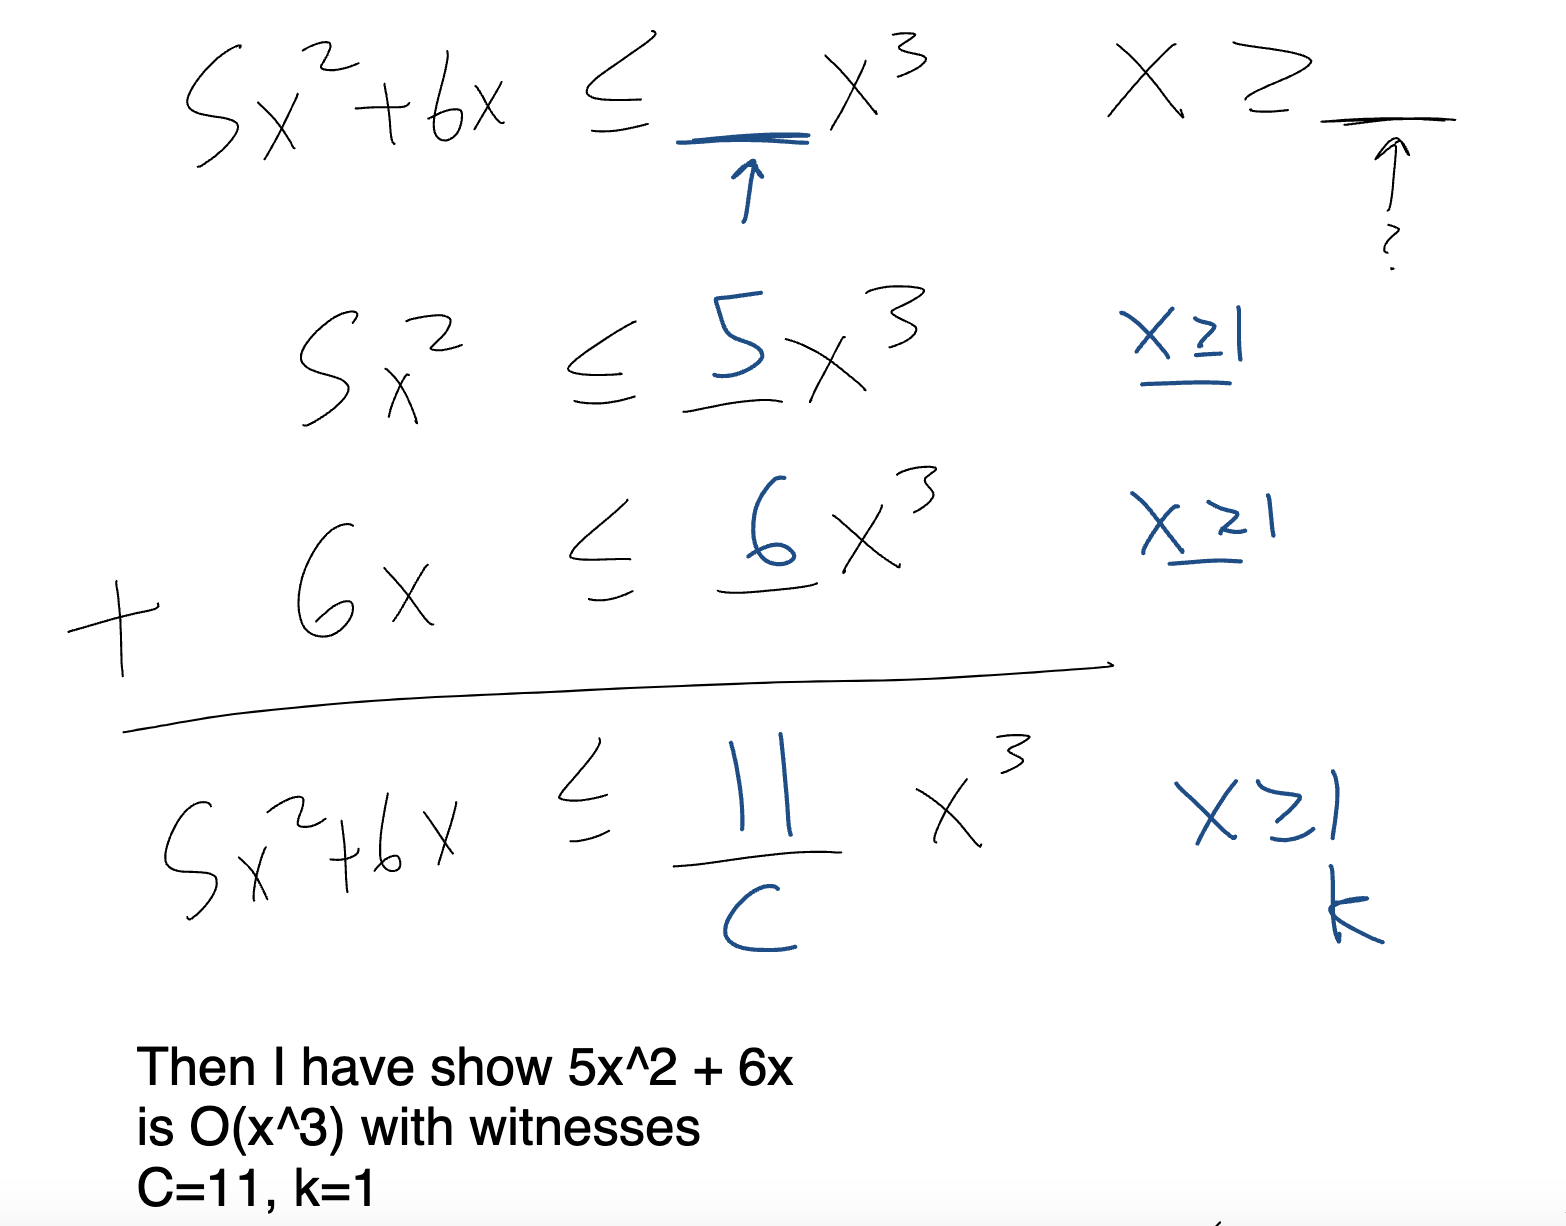 5x² + 6x ≤ __ x³ x ≥ __
↑ ↑
?
5x² ≤ 5x³ x ≥ 1
+ 6x ≤ 6x³ x ≥ 1
5x² + 6x ≤ 11 x³ x ≥ 1
C k
Then I have show 5x^2 + 6x
is O(x^3) with witnesses
C=11, k=1